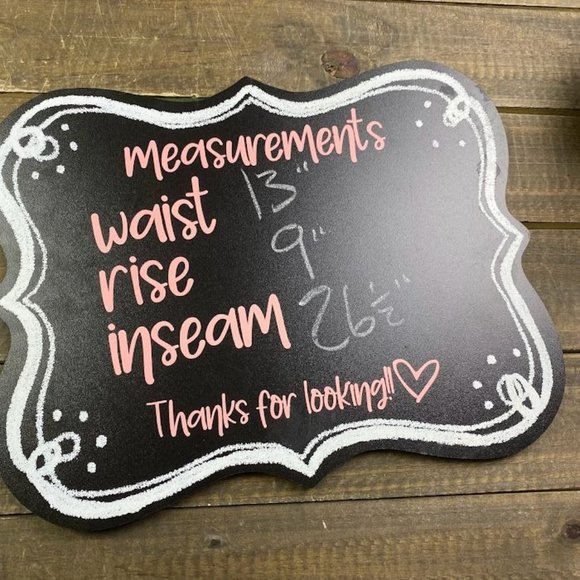 measurements
waist 13"
rise 9"
inseam 26 1/2"
Thanks for looking!!